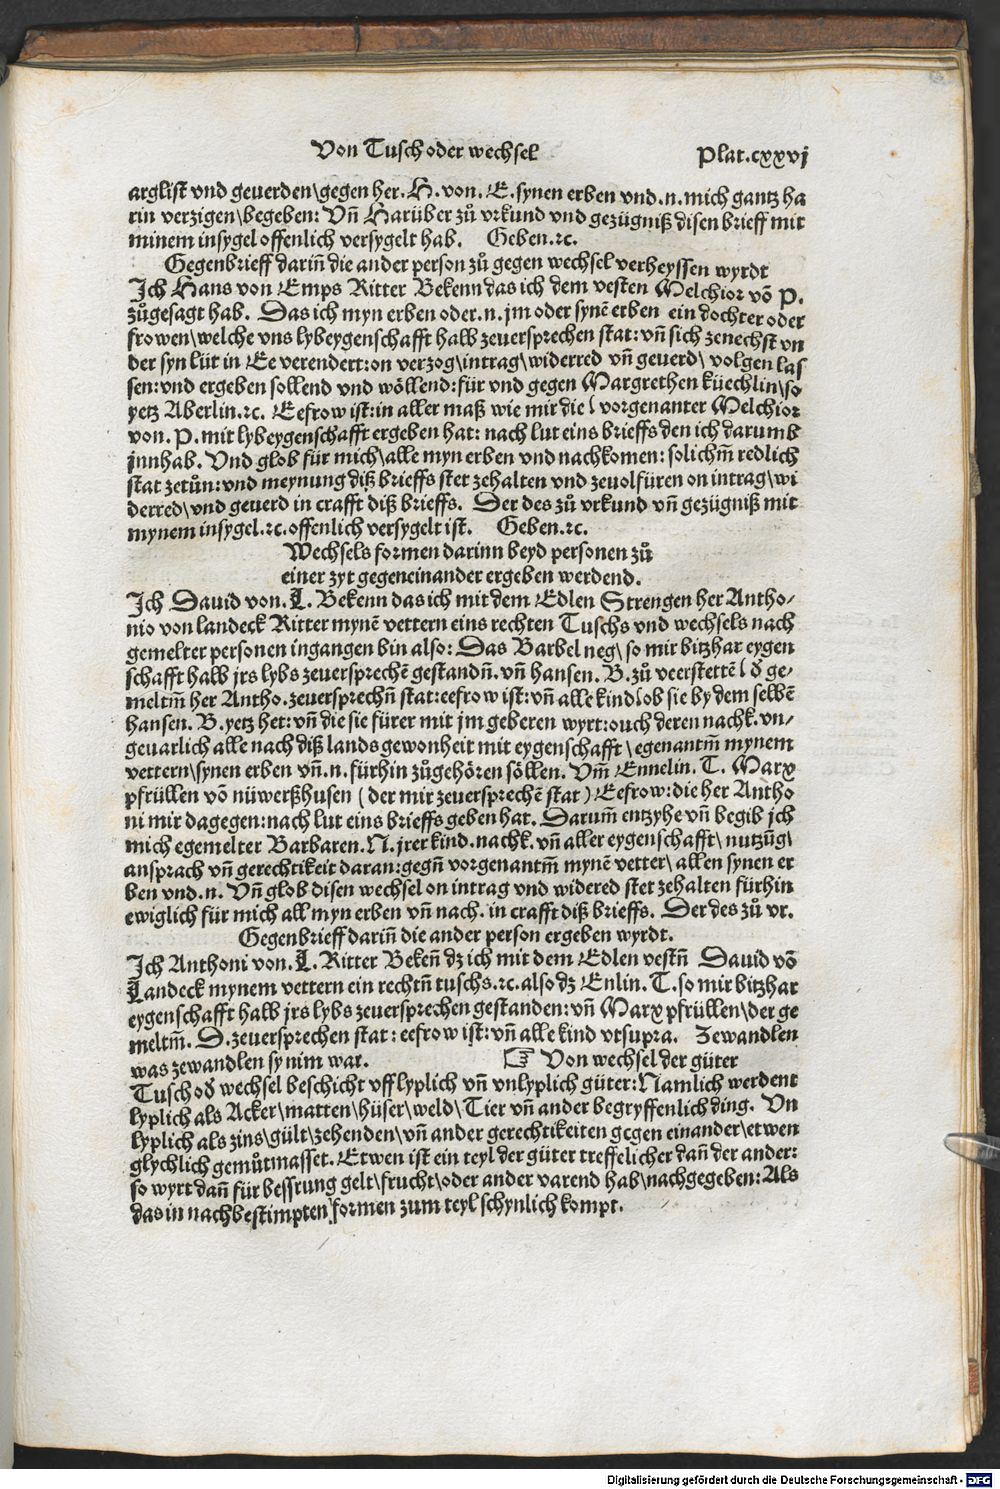 Von Tusch oder wechsel Plat.cxxvj
arglist vnd geuerden\gegen her. H. von. E. synen erben vnd .n. mich gantz ha
rin verzigen\begeben: Vn̄ Harüber zů vrkund vnd gezügniß disen brieff mit
minem insygel offenlich versygelt hab. Geben.ꝛc.
Gegenbrieff darin̄ die ander person zů gegen wechsel verheyssen wyrdt
Jch Hans von Emps Ritter Bekenn das ich dem vesten Melchior vō P.
zůgesagt hab. Das ich myn erben oder .n. jm oder synē erben ein dochter oder
frowen\welche vns lybeygenschafft halb zeuersprechen stat: vn̄ sich zenechst vn
der syn lüt in Ee verendert: on verzog\intrag\widerred vn̄ geuerd\ volgen las
sen: vnd ergeben sollend vnd wöllend: für vnd gegen Margrethen küechlin\so
yetz Aberlin.ꝛc. Eefrow ist: in aller maß wie mir die ( vorgenanter Melchior
von. P. mit lybeygenschafft ergeben hat: nach lut eins brieffs den ich darumb
jnnhab. Vnd glob für mich\alle myn erben vnd nachkomen: solichm̄ redlich
stat zetůn: vnd meynung diß brieffs stet zehalten vnd zeuolfüren on intrag\wi
derred\vnd geuerd in crafft diß brieffs. Der des zů vrkund vn̄ gezügniß mit
mynem insygel.ꝛc. offenlich versygelt ist. Geben.ꝛc.
Wechsels formen darinn beyd personen zů
einer zyt gegeneinander ergeben werdend.
Jch Dauid von. L. Bekenn das ich mit dem Edlen Strengen her Antho-
nio von landeck Ritter mynē vettern eins rechten Tuschs vnd wechsels nach
gemelter personen ingangen bin also: Das Barbel neg\ so mir bitzhar eygen
schafft halb jrs lybs zeuersprechē gestandn̄. vn̄ hansen. B. zů veerstettē ( d̄ ge-
meltm̄ her Antho. zeuersprechn̄ stat: eefrow ist: vn̄ alle kind ( ob sie by dem selbē
hansen. B. yetz het: vn̄ die sie fürer mit jm geberen wyrt: ouch deren nachk. vn-
geuarlich alle nach diß lands gewonheit mit eygenschafft \ egenantm̄ mynem
vettern\synen erben vn̄ .n. fürhin zůgehören söllen. Vm̄ Ennelin. T. Marx
pfrüllen vō nüwerßhusen ( der mir zeuersprechē stat ) Eefrow: die her Antho
ni mir dagegen: nach lut eins brieffs geben hat. Darum̄ entzyhe vn̄ begib jch
mich egemelter Barbaren. N. jrer kind. nachk. vn̄ aller eygenschafft\ nutzūg\
ansprach vn̄ gerechtikeit daran: gegn̄ vorgenantm̄ mynē vetter\ allen synen er
ben vnd .n. Vn̄ glob disen wechsel on intrag vnd widered stet zehalten fürhin
ewiglich für mich all myn erben vn̄ nach. in crafft diß brieffs. Der des zů vr.
Gegenbrieff darin̄ die ander person ergeben wyrdt.
Jch Anthoni von. L. Ritter Beken̄ dz ich mit dem Edlen vestn̄ Dauid vō
Landeck mynem vettern ein rechtn̄ tuschs.ꝛc. also dz Enlin. T. so mir bitzhar
eygenschafft halb jrs lybs zeuersprechen gestanden: vn̄ Marx pfrüllen\der ge
meltm̄. D. zeuersprechen stat: eefrow ist: vn̄ alle kind vtsupra. Zewandlen
was zewandlen sy nim war. ☞ Von wechsel der güter
Tusch od̄ wechsel beschicht vff lyplich vn̄ vnlyplich güter: Namlich werdent
lyplich als Acker\matten\hüser\weld\Tier vn̄ ander begryffenlich ding. Vn
lyplich als zins\gült\zehenden\vn̄ ander gerechtikeiten gegen einander\etwen
glychlich gemůtmasset. Etwen ist ein teyl der güter treffelicher dan̄ der ander:
so wyrt dan̄ für bessrung gelt\frucht\oder ander varend hab\nachgegeben: Als
das in nachbestimpten formen zum teyl schynlich kompt.
Digitalisierung gefördert durch die Deutsche Forschungsgemeinschaft - DFG